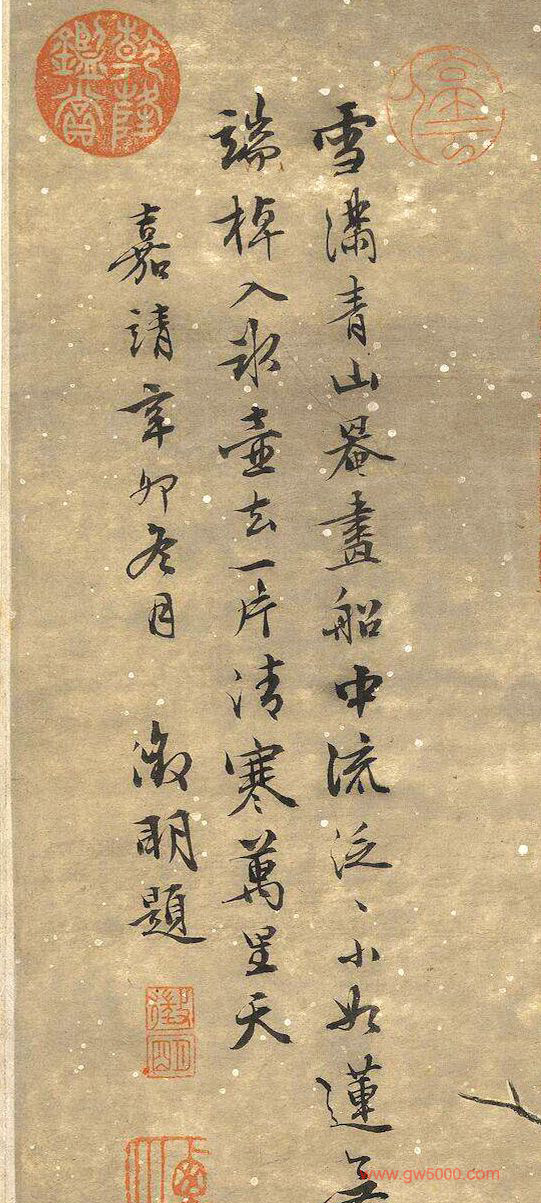 雪滿青山罨畫船中流泛〻小如蓮
端棹入冰壺去一片清寒萬里天
嘉靖辛卯冬月 徵明題
乾隆鑑賞
徵明
www.gw5000.com